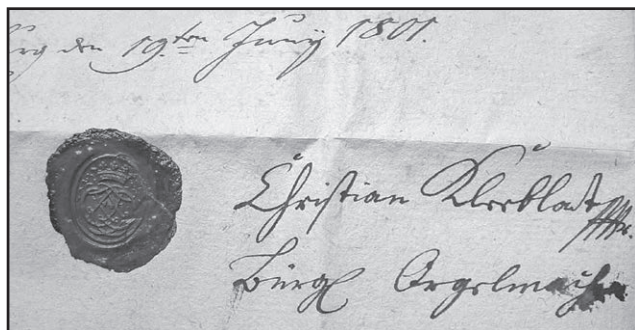 den 19ten Juny 1801.
Christian Kleeblatt
Bürgl Orgelmacher